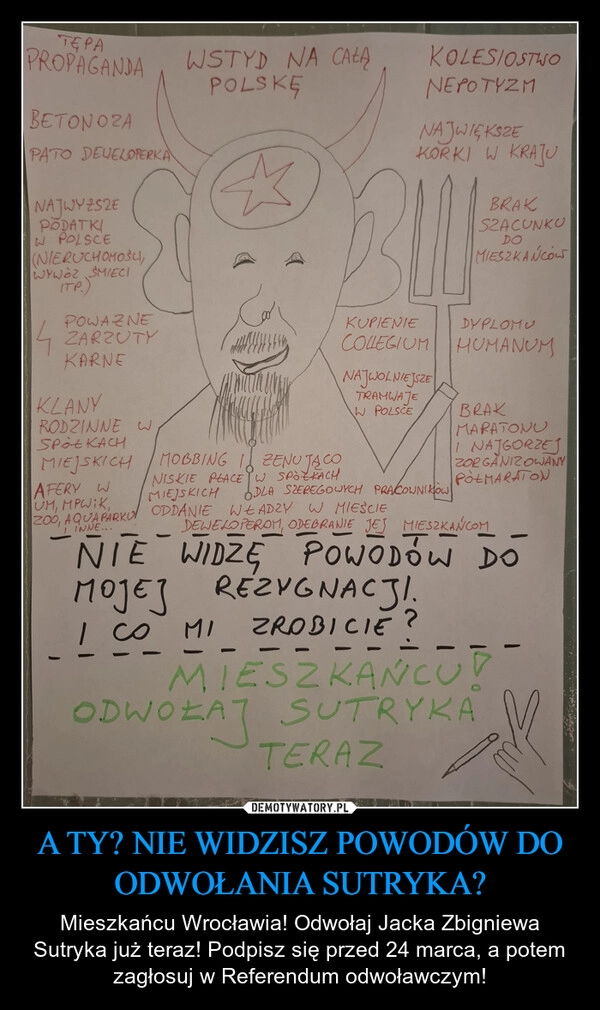 TĘPA
PROPAGANDA
WSTYD NA CAŁĄ
POLSKĘ
KOLESIOSTWO
NEPOTYZM
BETONOZA
PATO DEWELOPERKA
NAJWIĘKSZE
KORKI W KRAJU
NAJWYŻSZE
PODATKI
W POLSCE
(NIERUCHOMOŚCI,
WYWÓZ ŚMIECI
ITP.)
BRAK
SZACUNKU
DO
MIESZKAŃCÓW
4 POWAŻNE
ZARZUTY
KARNE
KUPIENIE DYPLOMU
COLLEGIUM HUMANUM
NAJWOLNIEJSZE
TRAMWAJE
W POLSCE
KLANY
RODZINNE W
SPÓŁKACH
MIEJSKICH
BRAK
MARATONU
I NAJGORZEJ
ZORGANIZOWANY
PÓŁMARATON
AFERY W
UM, MPWiK,
ZOO, AQUAPARKU
I INNE...
MOBBING I ŻENUJĄCO
NISKIE PŁACE W SPÓŁKACH
MIEJSKICH DLA SZEREGOWYCH PRACOWNIKÓW
ODDANIE WŁADZY W MIEŚCIE
DEWELOPEROM, ODEBRANIE JEJ MIESZKAŃCOM
NIE WIDZĘ POWODÓW DO
MOJEJ REZYGNACJI.
I CO MI ZROBICIE?
MIESZKAŃCU!
ODWOŁAJ SUTRYKA
TERAZ
DEMOTYWATORY.PL
A TY? NIE WIDZISZ POWODÓW DO
ODWOŁANIA SUTRYKA?
Mieszkańcu Wrocławia! Odwołaj Jacka Zbigniewa
Sutryka już teraz! Podpisz się przed 24 marca, a potem
zagłosuj w Referendum odwoławczym!